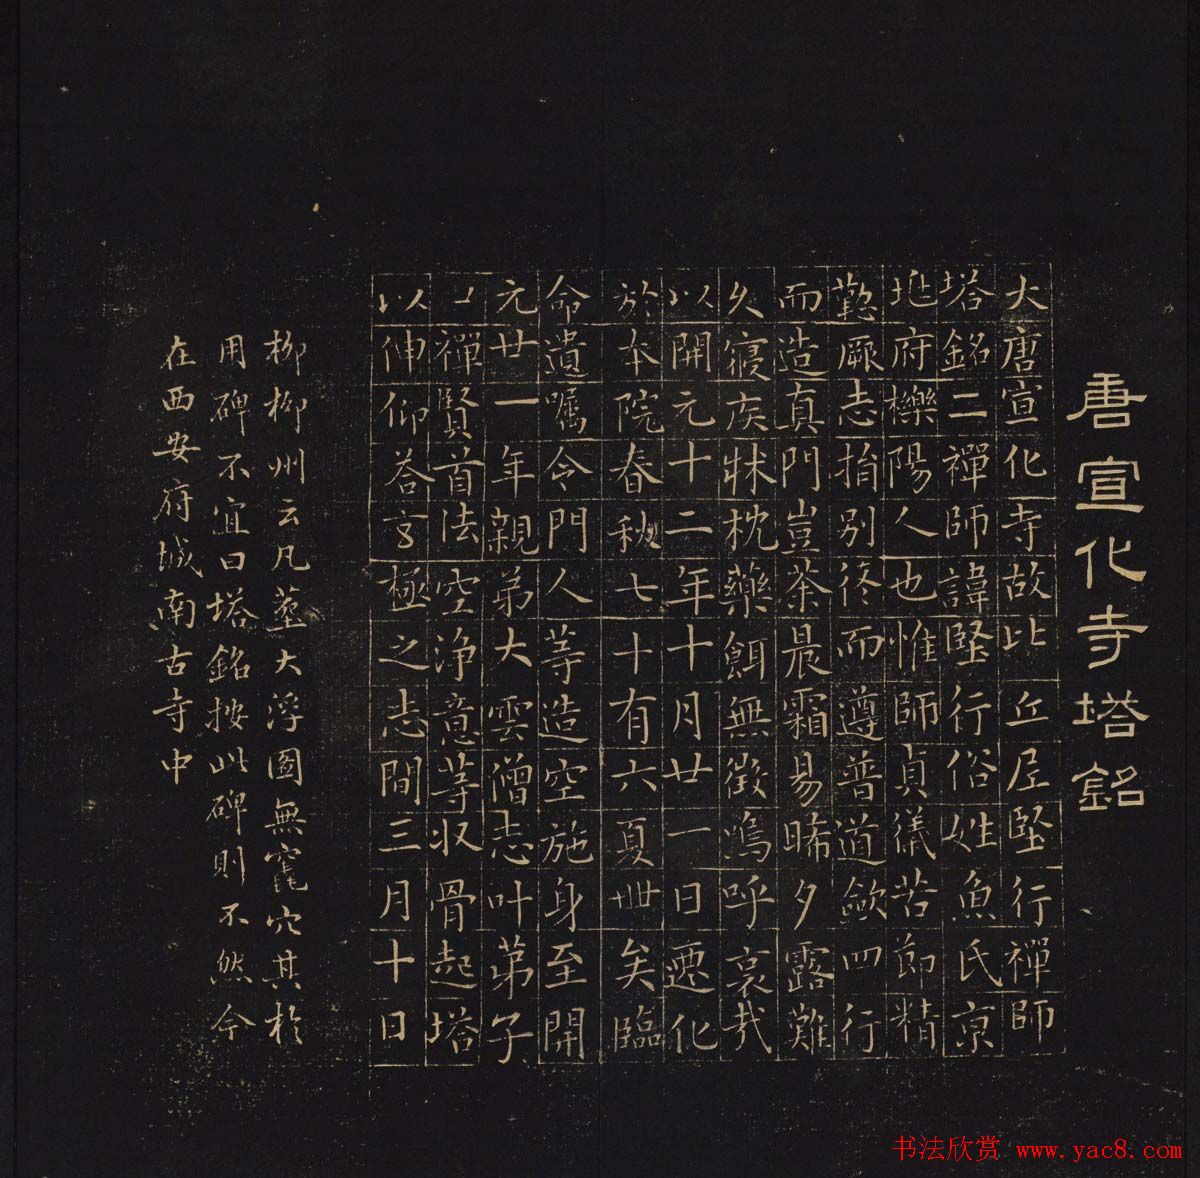 唐宣化寺塔銘
大唐宣化寺故比丘尼堅行禪師
塔銘二禪師諱堅行俗姓魚氏京
兆府櫟陽人也惟師貞儀苦節精
懃厥志捐別修而遵普道歛四行
而造真門豈荼晨霜易晞夕露難
久寢疾牀枕藥餌無徵嗚呼哀哉
以開元十二年十月廿一日遷化
於本院春秋七十有六夏卌矣臨
命遺囑令門人等造空施身至開
元廿一年親弟大雲僧志叶弟子
禪賢首法空淨意等收骨起塔
以伸仰荅玄極之志間三月十日
柳柳州云凡葬大浮圖無竁穴其於
用碑不宜曰塔銘按此碑則不然今
在西安府城南古寺中
书法欣赏 www.yac8.com